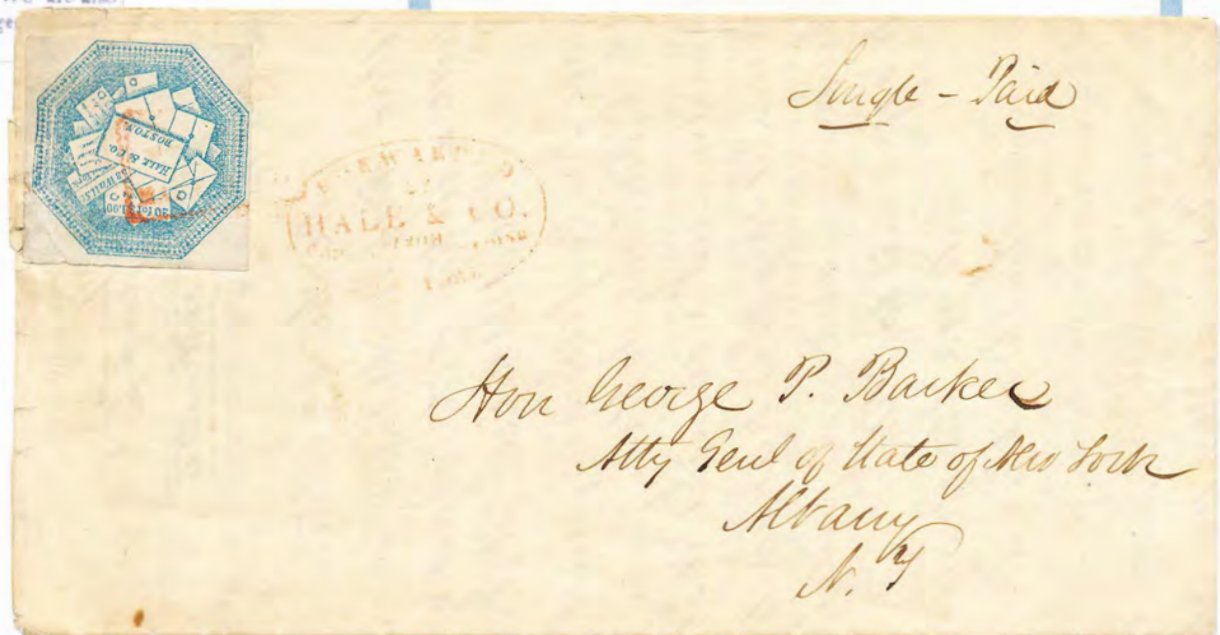 Single - Paid
HALE & CO.
BOSTON.
20 for $1.00
FORWARDED
HALE & CO.
Hon George P. Barker
Atty Genl of State of New York
Albany
N. Y